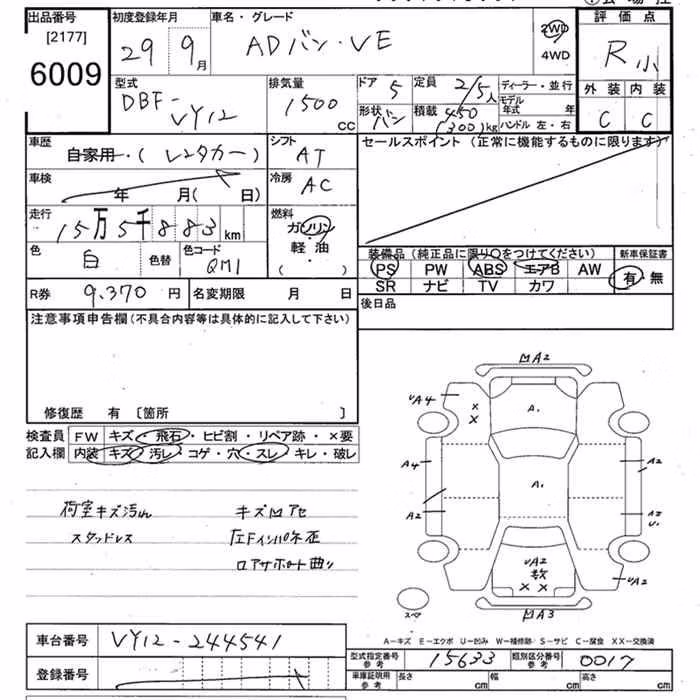 出品番号 初度登録年月 車名・グレード 評価点
[2177]
6009
29 9月 ADバン・VE 2WD R小
4WD
型式 排気量 ドア 定員 ディーラー・並行 外装 内装
DBF- 1500 5 2/5人 モデル年式 年 C C
VY12 CC 形状 積載 450
バン (300)kg ハンドル 左・右
車歴 シフト セールスポイント (正常に機能するものに限ります)
自家用・(レンタカー) AT
車検 冷房
年 月(日) AC
走行 燃料
15万5千883km ガソリン
軽油
( )
色 白 色替 色コード QM1
装備品 (純正品に限り○をつけてください) 新車保証書
PS PW ABS エアB AW 有・無
SR ナビ TV カワ
R券 9,370円 名変期限 月 日 後日品
注意事項申告欄(不具合内容等は具体的に記入して下さい)
修復歴 有 [箇所 ]
検査員 FW キズ・飛石・ヒビ割・リペア跡・×要
記入欄 内装 キズ・汚レ・コゲ・穴・スレ・キレ・破レ
荷室キズ汚れ キズ凹アセ
スタッドレス 左Fインパネ歪
ロアサポート曲り
凹A2
UA4 × × A1
A4 A2
A2 A1 A2 U1
UA2
数
× × UA2
スペア 凹A3
A-キズ E-エクボ U-凹み W-補修跡 S-サビ C-腐食 XX-交換済
車台番号 VY12-244541
型式指定番号 参考 15633 類別区分番号 参考 0017
登録番号
車庫証明用 参考 長さ cm 幅 cm 高さ cm